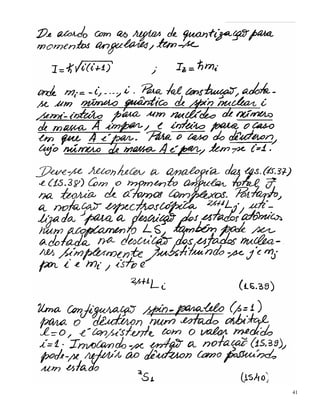 De acordo com as regras de quantização para
momentos angulares, tem-se
I = ħ√i(i+1) ; I_z = ħm_i
onde m_i = -i, ..., i. Para tal construção, adota-
se um número quântico de spin nuclear i
semi-inteiro para um nuclídeo de número
de massa A ímpar, e inteiro para o caso
em que A é par. Para o caso do dêuteron,
cujo número de massa A é par, tem-se i=1.
Deve-se reconhecer a analogia das eqs. (15.37)
e (15.38) com o momento angular total J
na teoria de átomos complexos. Portanto,
a notação espectroscópica ²ˢ⁺¹L_j, uti-
lizada para a descrição dos estados atômicos
num acoplamento LS, também pode ser
adotada na descrição dos estados nuclea-
res simplesmente substituindo-se j e m_j
por i e m_i, isto é
²ˢ⁺¹L_i (15.39)
Uma configuração spin-paralelo (s=1)
para o dêuteron num estado orbital
l=0, é consistente com o valor medido
i=1. Invocando-se então a notação (15.39),
pode-se referir ao dêuteron como possuindo
um estado
³S₁ (15.40)
41